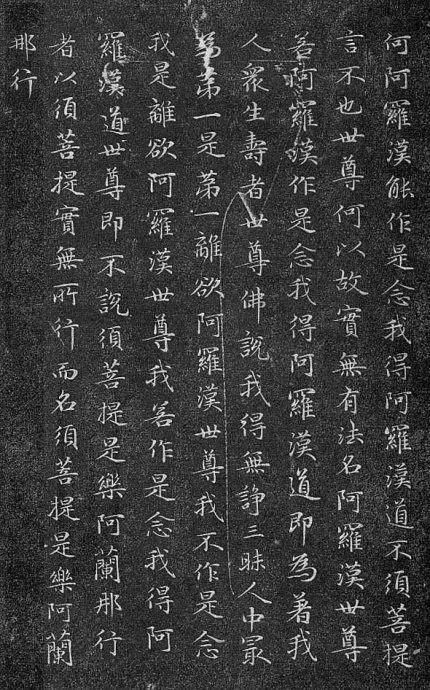 何阿羅漢能作是念我得阿羅漢道不須菩提
言不也世尊何以故實無有法名阿羅漢世尊
若阿羅漢作是念我得阿羅漢道即為著我
人衆生壽者世尊佛說我得無諍三昧人中冣
第一是第一離欲阿羅漢世尊我不作是念
我是離欲阿羅漢世尊我若作是念我得阿
羅漢道世尊即不說須菩提是樂阿蘭那行
者以須菩提實無所行而名須菩提是樂阿蘭
那行